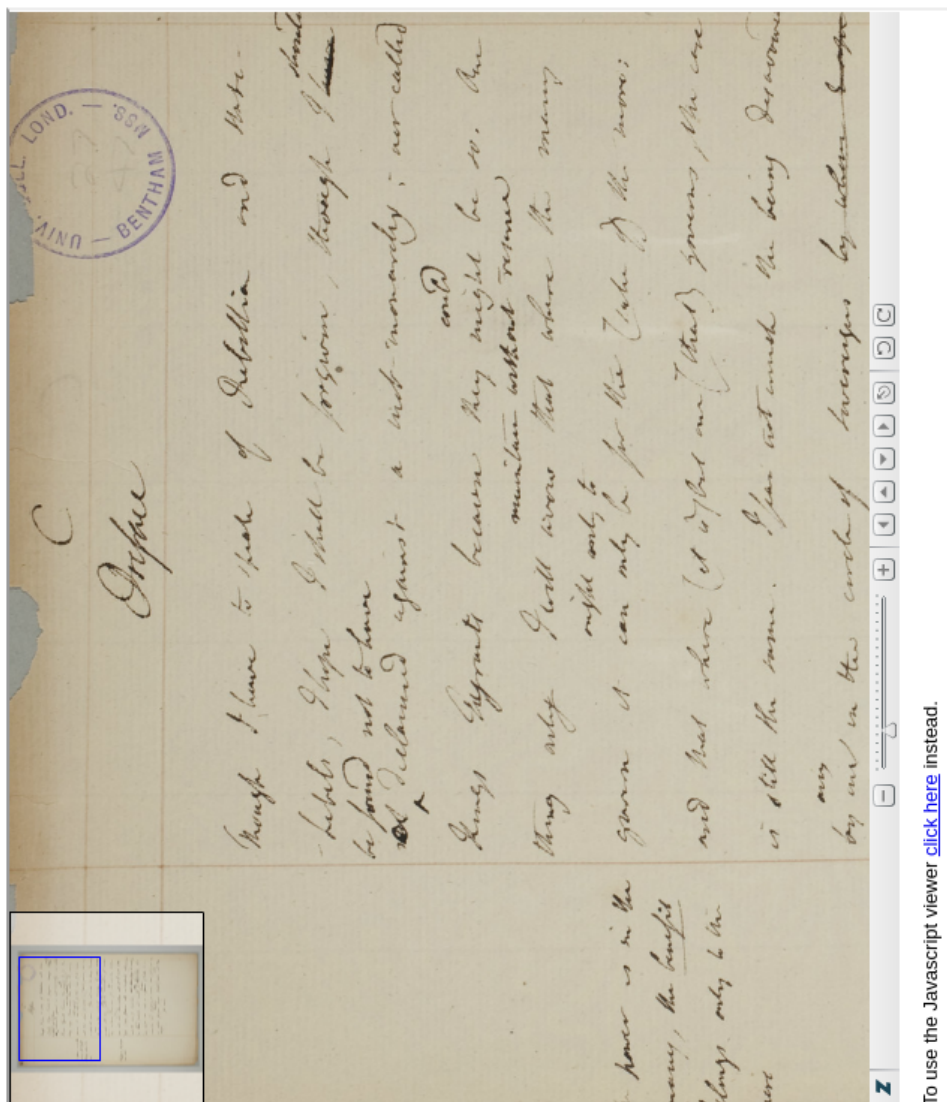 UNIV. COLL. LOND. — MSS. — BENTHAM
C
Preface
Though I have to speak of Rebellion and
Rebels, I hope I shall be forgiven, though I have should
be found not to have
not declaimed against a mot monarchy; nor called
Kings Tyrants because they might be so. One
could
maintain without reserve
thing only I will avow that where the many
might only to
govern it can only be for the sake of the more:
and that where (it is) but one (that) governs, the case
is still the same. I fear not much the being disavowed
any
by one in the circle of Sovereigns by whom
power is in the
many, the benefit
belongs only to the
To use the Javascript viewer click here instead.